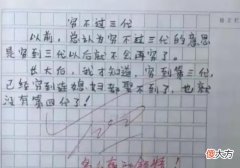 穷不过三代
以前，总以为穷不过三代的意思
是穷到三代以后就不会再穷了。
长大后，我才知道，穷到第三代，
已经穷到连媳妇都娶不到了，也就
没有第四代了！
傻大方